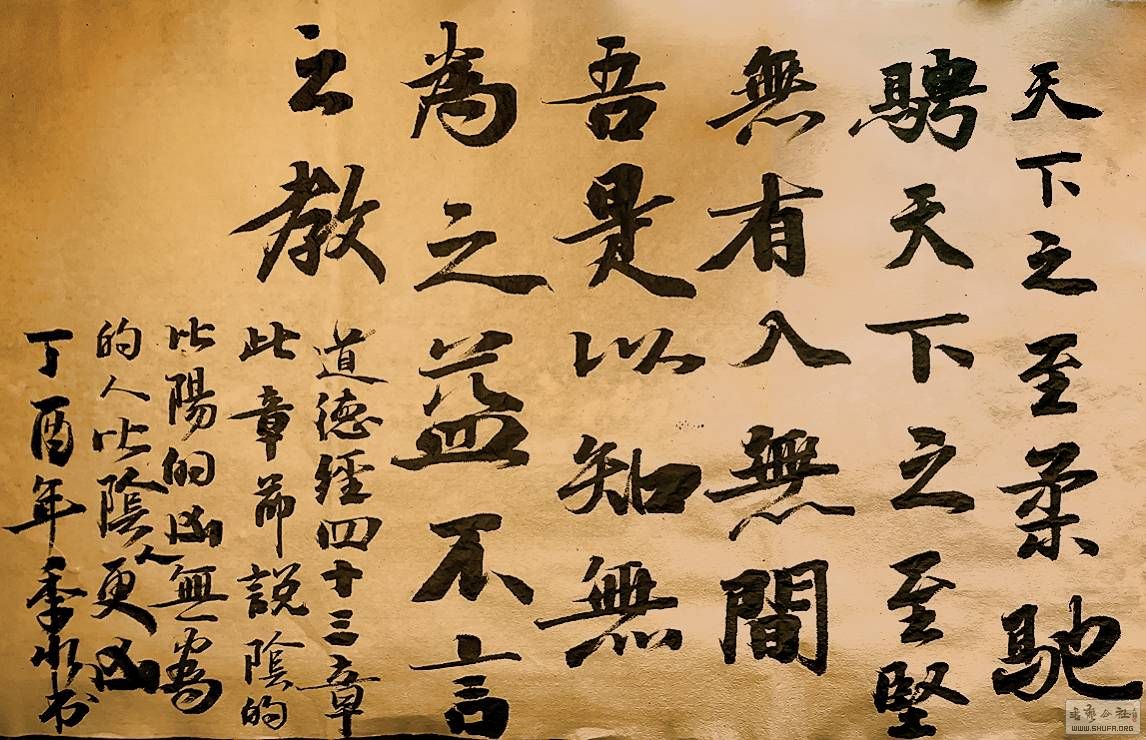 天下之至柔馳
騁天下之至堅
無有入無間
吾是以知無
為之益不言
之教
道德經四十三章
此章節説陰的
比陽的凶無為
的人比陰人更凶
丁酉年季书
書藝公社
WWW.SHUFA.ORG